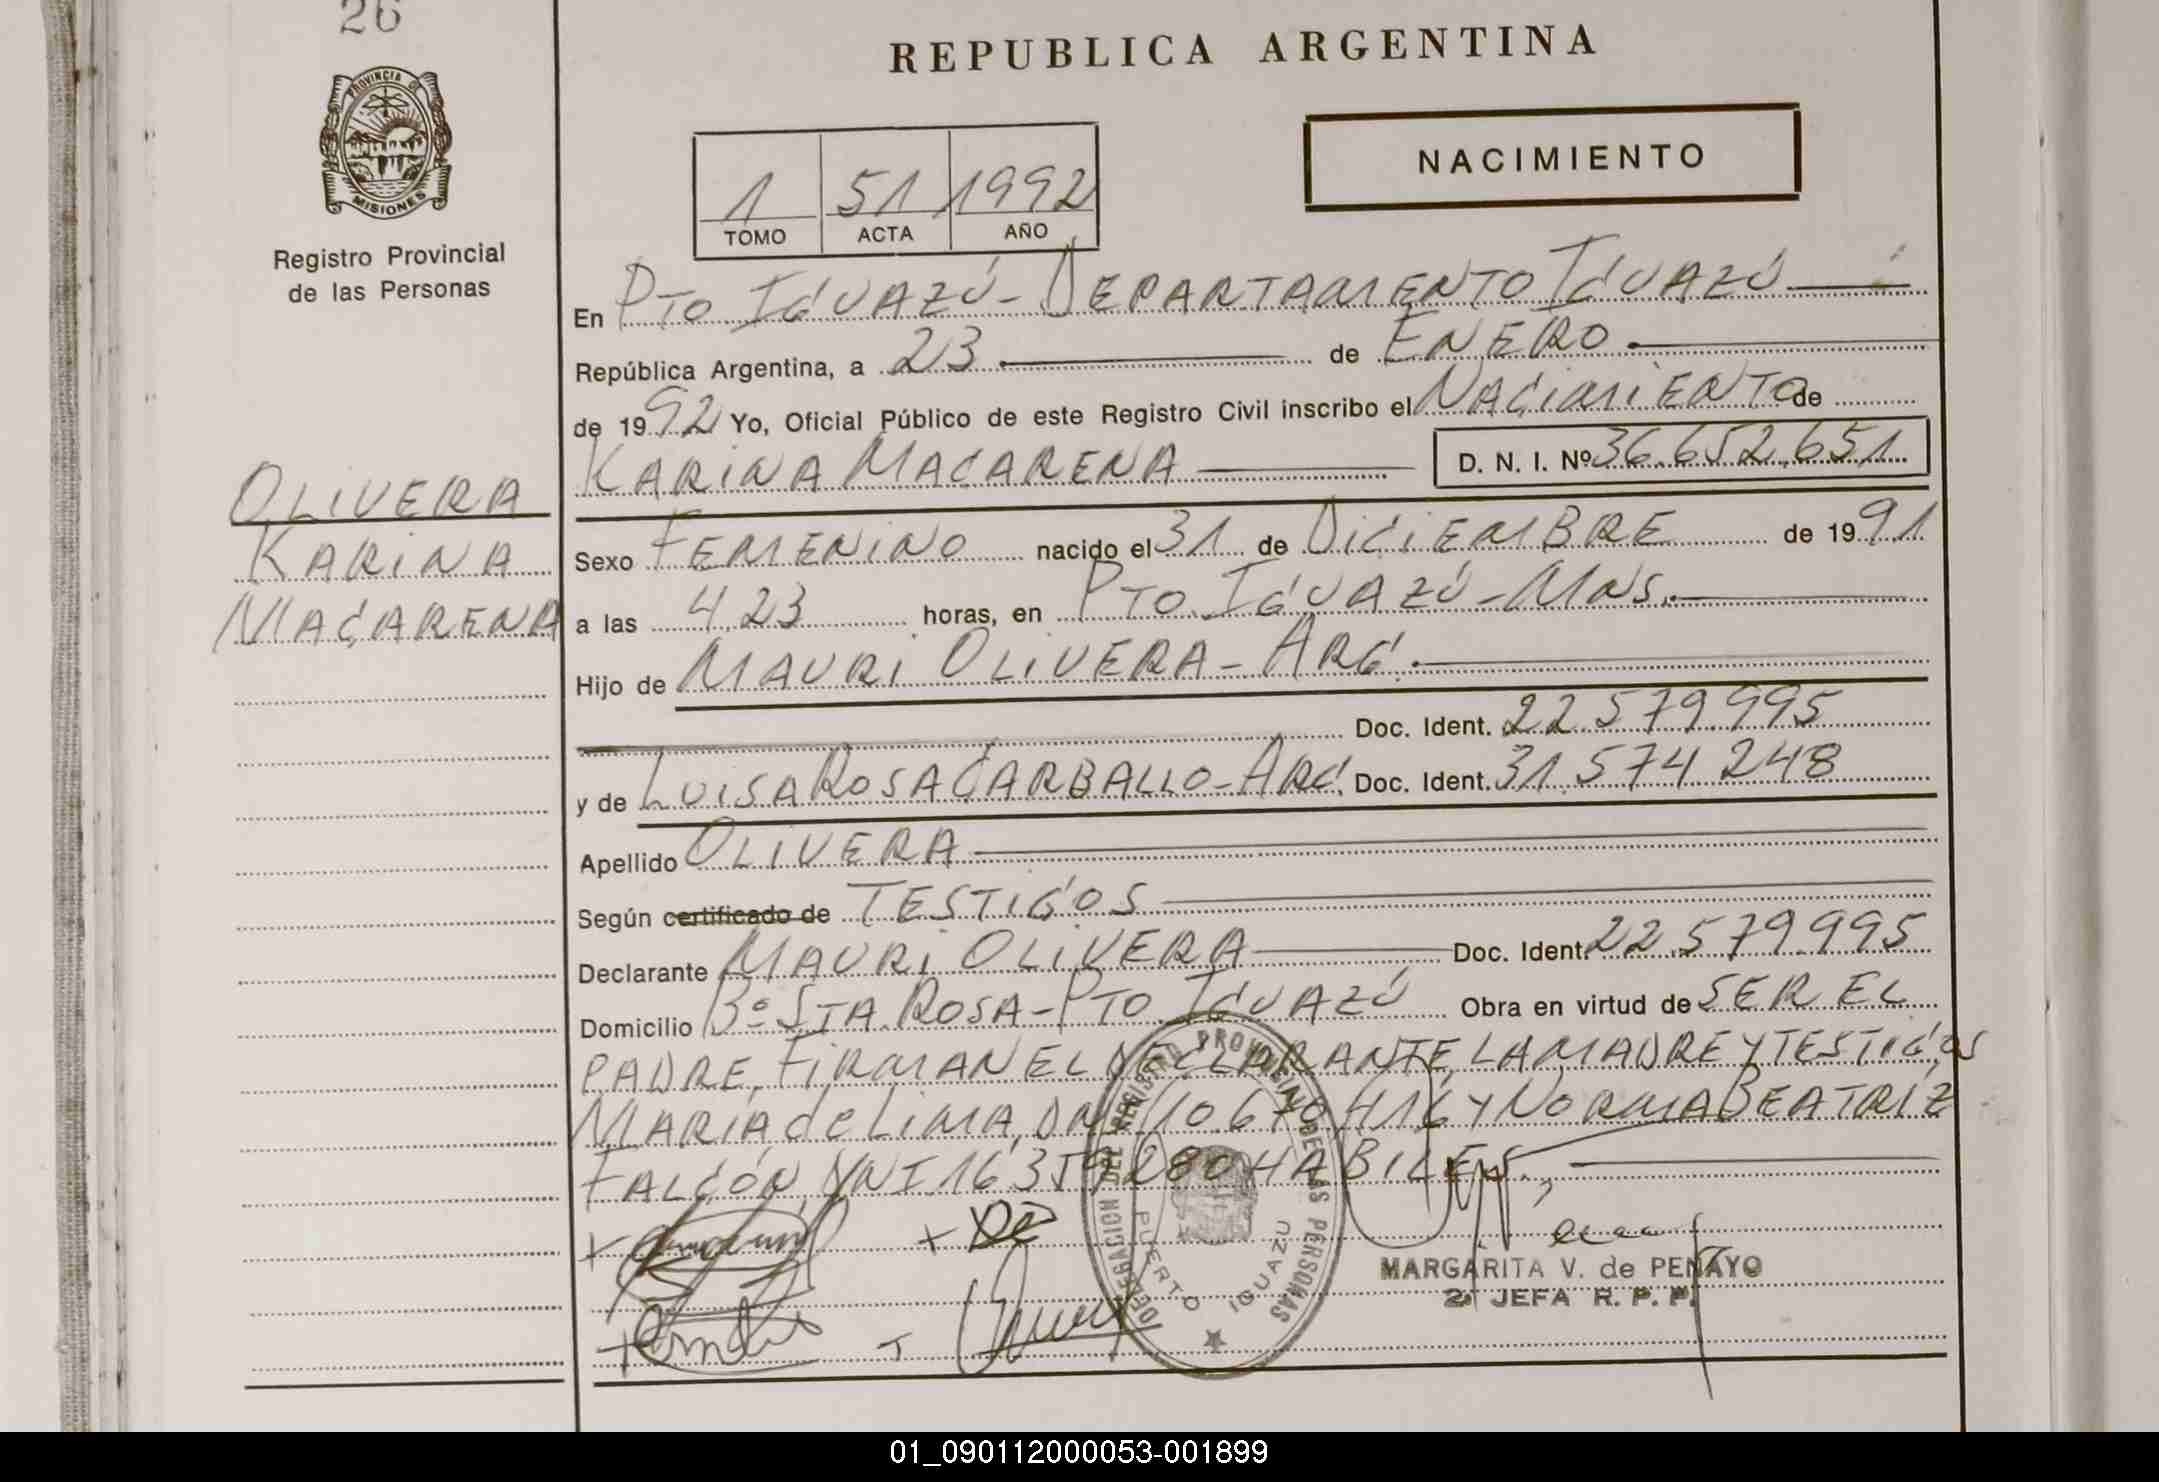 26
REPUBLICA ARGENTINA
PROVINCIA DE
MISIONES
Registro Provincial
de las Personas
NACIMIENTO
1 51 1992
TOMO ACTA AÑO
En Pto Iguazú - Departamento Iguazú
República Argentina, a 23 de Enero
de 1992 Yo, Oficial Público de este Registro Civil inscribo el Nacimiento de
Karina Macarena D. N. I. Nº 36.652.651
Olivera
Karina
Macarena
Sexo Femenino nacido el 31 de Diciembre de 1991
a las 4,23 horas, en Pto. Iguazú - Mns.
Hijo de Mauri Olivera - Arg.
Doc. Ident. 22.579.995
y de Luisa Rosa Carballo - Arg. Doc. Ident. 31.574 248
Apellido Olivera
Según certificado de Testigos
Declarante Mauri Olivera Doc. Ident. 22.579.995
Domicilio Bº Sta. Rosa - Pto Iguazú Obra en virtud de ser el
padre, firman el declarante, la madre y testigos
María de Lima, DNI 10.670.416 y Norma Beatríz
Falcón, DNI 16.359.280 Habiles.
DELEGACION DEL REGISTRO PROVINCIAL DE LAS PERSONAS
PUERTO IGUAZU
MARGARITA V. de PENAYO
2ª JEFA R. P. P.
01_090112000053-001899